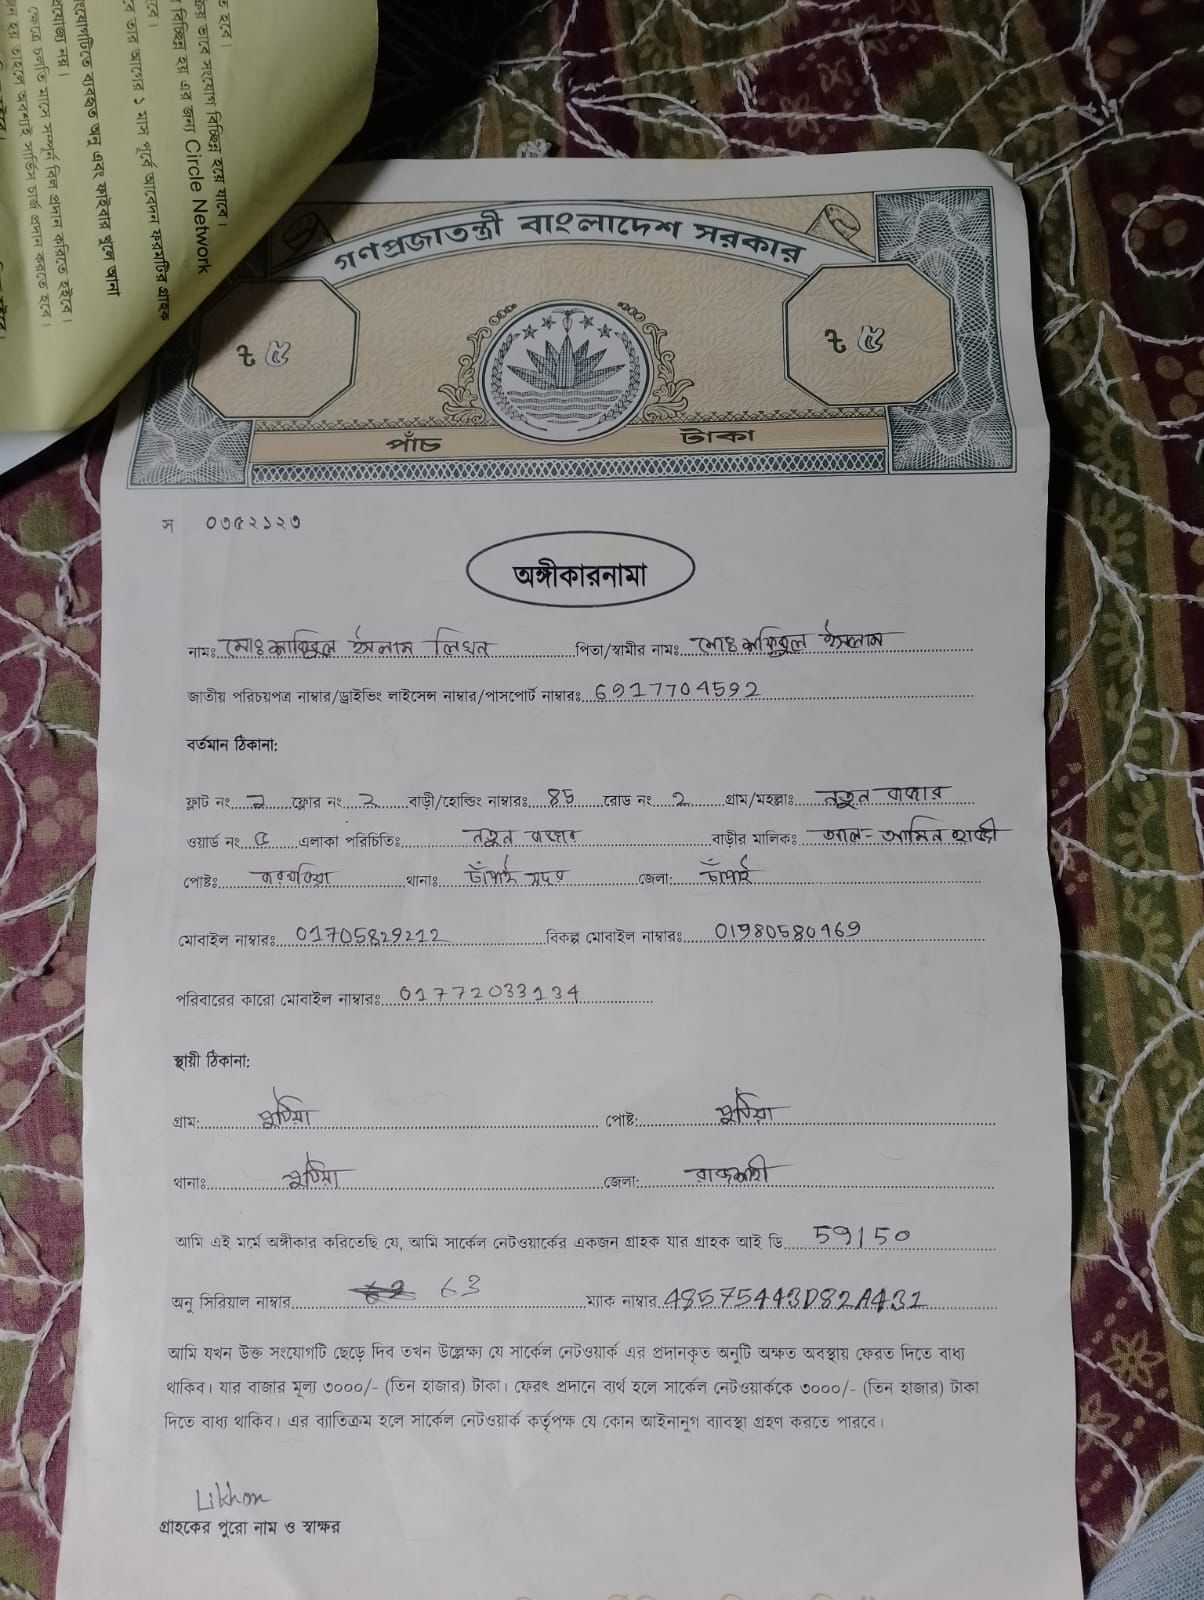 ত হবে।
ক্রমে ভাবে সংযোগ বিচ্ছিন্ন হয়ে যাবে।
বিচ্ছিন্ন হয় এর জন্য Circle Network
বে।
বে তার আগের ১ মাস পূর্বে আবেদন ফরমটির গ্রাহক
সংযোগটিতে ব্যবহৃত অনু এবং ফাইবার খুলে আনা
প্রযোজ্য নয়।
ক্ষেত্রে চলতি মাসে সম্পূর্ণ বিল প্রদান করিতে হইবে।
হয় তাহলে অবশ্যই সার্ভিস চার্জ প্রদান করতে হবে।
গণপ্রজাতন্ত্রী বাংলাদেশ সরকার
৳ ৫ ৳ ৫
পাঁচ টাকা
স ০৩৫২১২৩
অঙ্গীকারনামা
নামঃ মোঃ ইসলাম লিখন পিতা/স্বামীর নামঃ মোঃ রফিকুল ইসলাম
জাতীয় পরিচয়পত্র নাম্বার/ড্রাইভিং লাইসেন্স নাম্বার/পাসপোর্ট নাম্বারঃ 6917704592
বর্তমান ঠিকানা:
ফ্লাট নং 2 ফ্লোর নং 2 বাড়ী/হোল্ডিং নাম্বারঃ 85 রোড নং 2 গ্রাম/মহল্লাঃ নতুন বাজার
ওয়ার্ড নং ৫ এলাকা পরিচিতিঃ নতুন বাজার বাড়ীর মালিকঃ আল-আমিন হাজী
পোষ্টঃ থানাঃ চাঁপাই সদর জেলা: চাঁপাই
মোবাইল নাম্বারঃ 01705829212 বিকল্প মোবাইল নাম্বারঃ 01980580969
পরিবারের কারো মোবাইল নাম্বারঃ 01772033134
স্থায়ী ঠিকানা:
গ্রাম: পুঠিয়া পোষ্ট: পুঠিয়া
থানাঃ পুঠিয়া জেলা: রাজশাহী
আমি এই মর্মে অঙ্গীকার করিতেছি যে, আমি সার্কেল নেটওয়ার্কের একজন গ্রাহক যার গ্রাহক আই ডি 59150
অনু সিরিয়াল নাম্বার 63 ম্যাক নাম্বার 48575443D82A431
আমি যখন উক্ত সংযোগটি ছেড়ে দিব তখন উল্লেক্ষ্য যে সার্কেল নেটওয়ার্ক এর প্রদানকৃত অনুটি অক্ষত অবস্থায় ফেরত দিতে বাধ্য
থাকিব। যার বাজার মূল্য ৩০০০/- (তিন হাজার) টাকা। ফেরৎ প্রদানে ব্যর্থ হলে সার্কেল নেটওয়ার্ককে ৩০০০/- (তিন হাজার) টাকা
দিতে বাধ্য থাকিব। এর ব্যাতিক্রম হলে সার্কেল নেটওয়ার্ক কর্তৃপক্ষ যে কোন আইনানুগ ব্যাবস্থা গ্রহণ করতে পারবে।
Likhon
গ্রাহকের পুরো নাম ও স্বাক্ষর